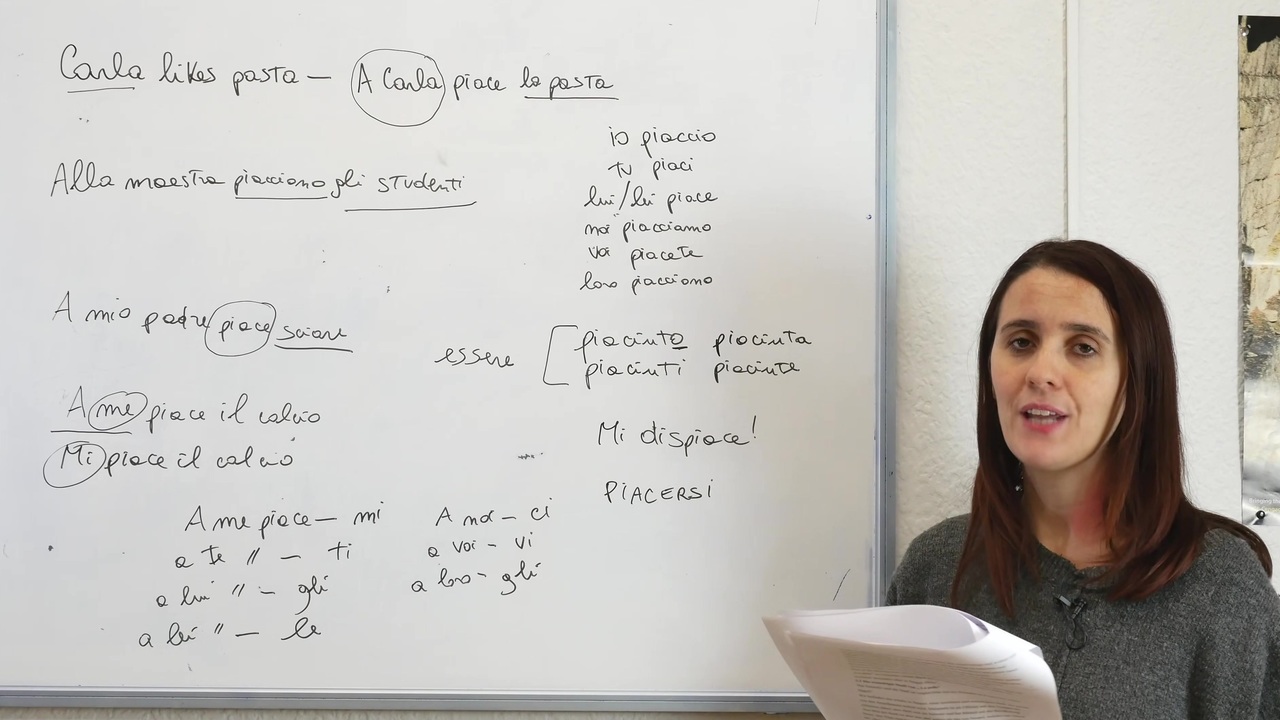 Carla likes pasta — A Carla piace la pasta
Alla maestra piacciono gli studenti
A mio padre piace sciare
A me piace il calcio
Mi piace il calcio
A me piace — mi
a te " — ti
a lui " — gli
a lei " — le
A noi — ci
a voi — vi
a loro — gli
io piaccio
tu piaci
lui/lei piace
noi piacciamo
voi piacete
loro piacciono
essere
piaciuto piaciuta
piaciuti piaciute
Mi dispiace!
PIACERSI